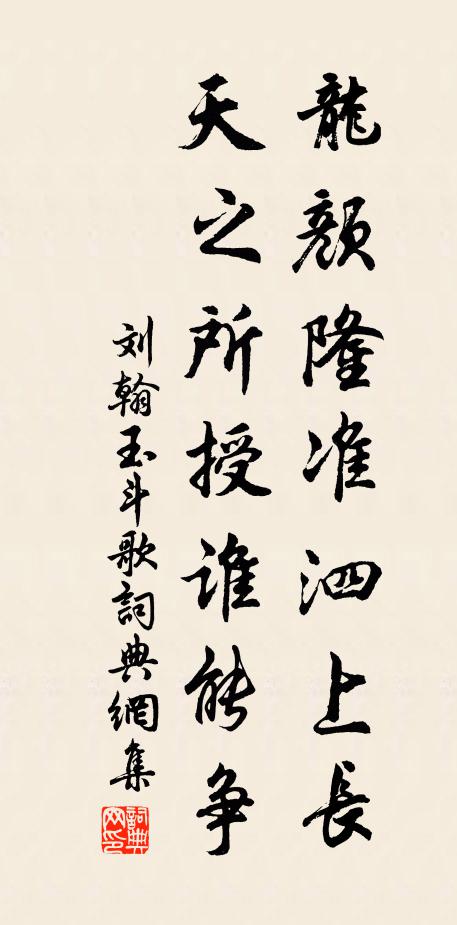 龍顔隆准泗上長
天之所授誰能争
刘翰玉斗歌詞典網集
詞典网印